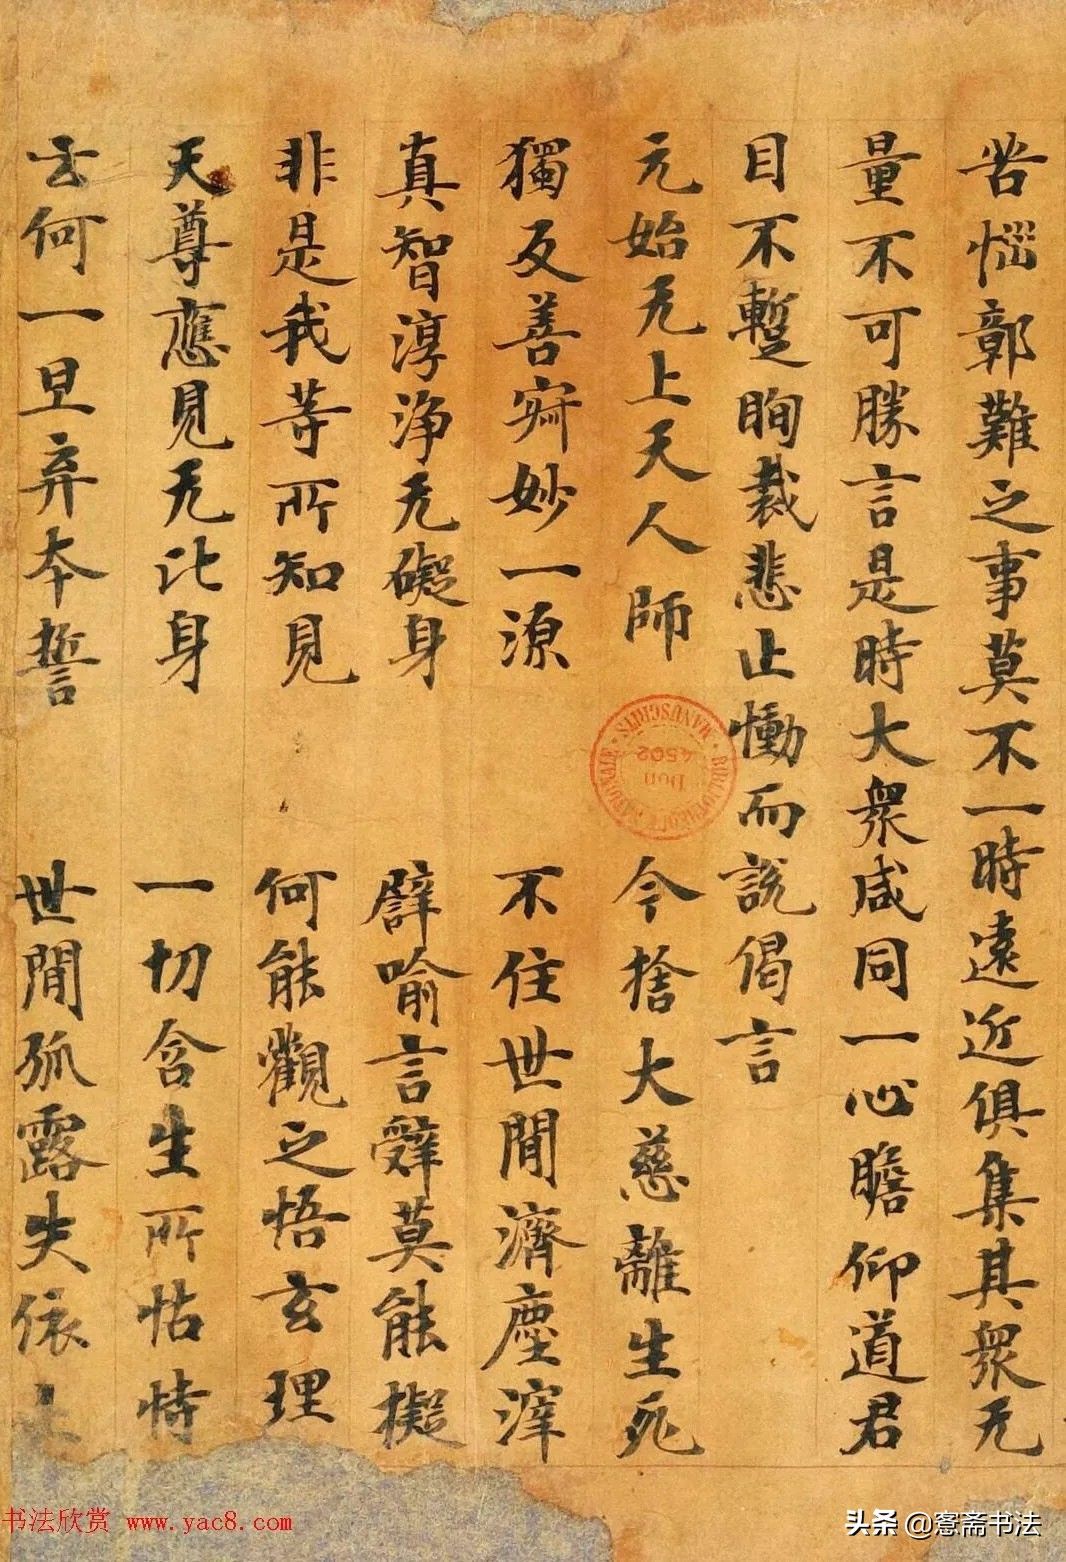 苦惱鄣難之事莫不一時遠近俱集其衆无
量不可勝言是時大衆咸同一心瞻仰道君
目不暫眴裁悲止慟而説偈言
元始无上天人師 今捨大慈離生死
獨反善寂妙一源 不住世間濟塵滓
真智淳淨无礙身 譬喻言辭莫能擬
非是我等所知見 何能觀之悟玄理
天尊應見无比身 一切含生所怙恃
云何一旦弃本誓 世間孤露失依止
BIBLIOTHEQUE NATIONALE MANUSCRITS
Don
4502
书法欣赏 www.yac8.com
头条 @寋斋书法